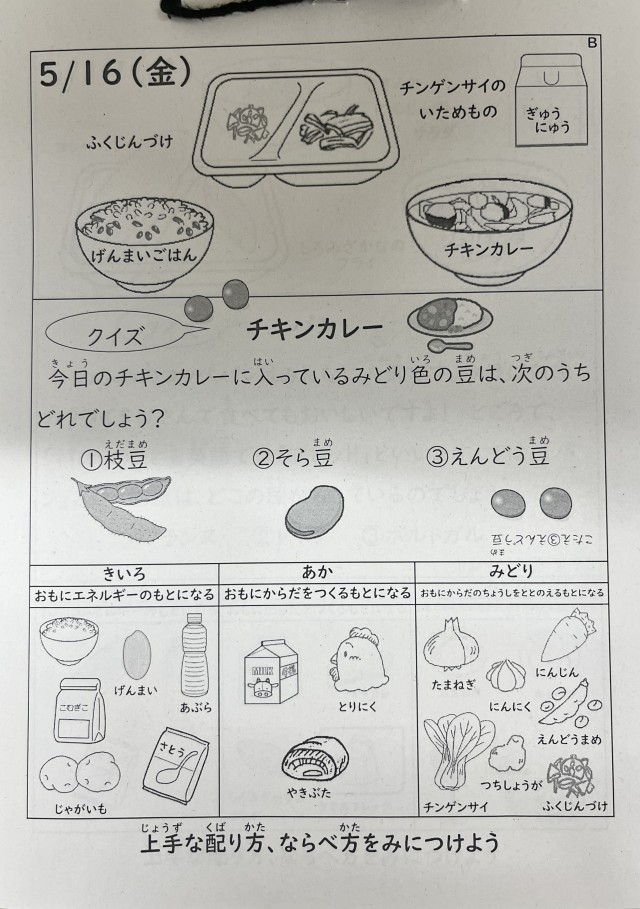 B
5/16(金)
チンゲンサイの
いためもの
ぎゅう
にゅう
ふくじんづけ
げんまいごはん
チキンカレー
クイズ
チキンカレー
今日のチキンカレーに入っているみどり色の豆は、次のうち
どれでしょう?
①枝豆 ②そら豆 ③えんどう豆
こたえ③えんどう豆
きいろ あか みどり
おもにエネルギーのもとになる おもにからだをつくるもとになる おもにからだのちょうしをととのえるもとになる
げんまい
あぶら
こむぎこ
さとう
じゃがいも
MILK
とりにく
やきぶた
たまねぎ
にんにく
にんじん
えんどうまめ
つちしょうが
チンゲンサイ
ふくじんづけ
上手な配り方、ならべ方をみにつけよう